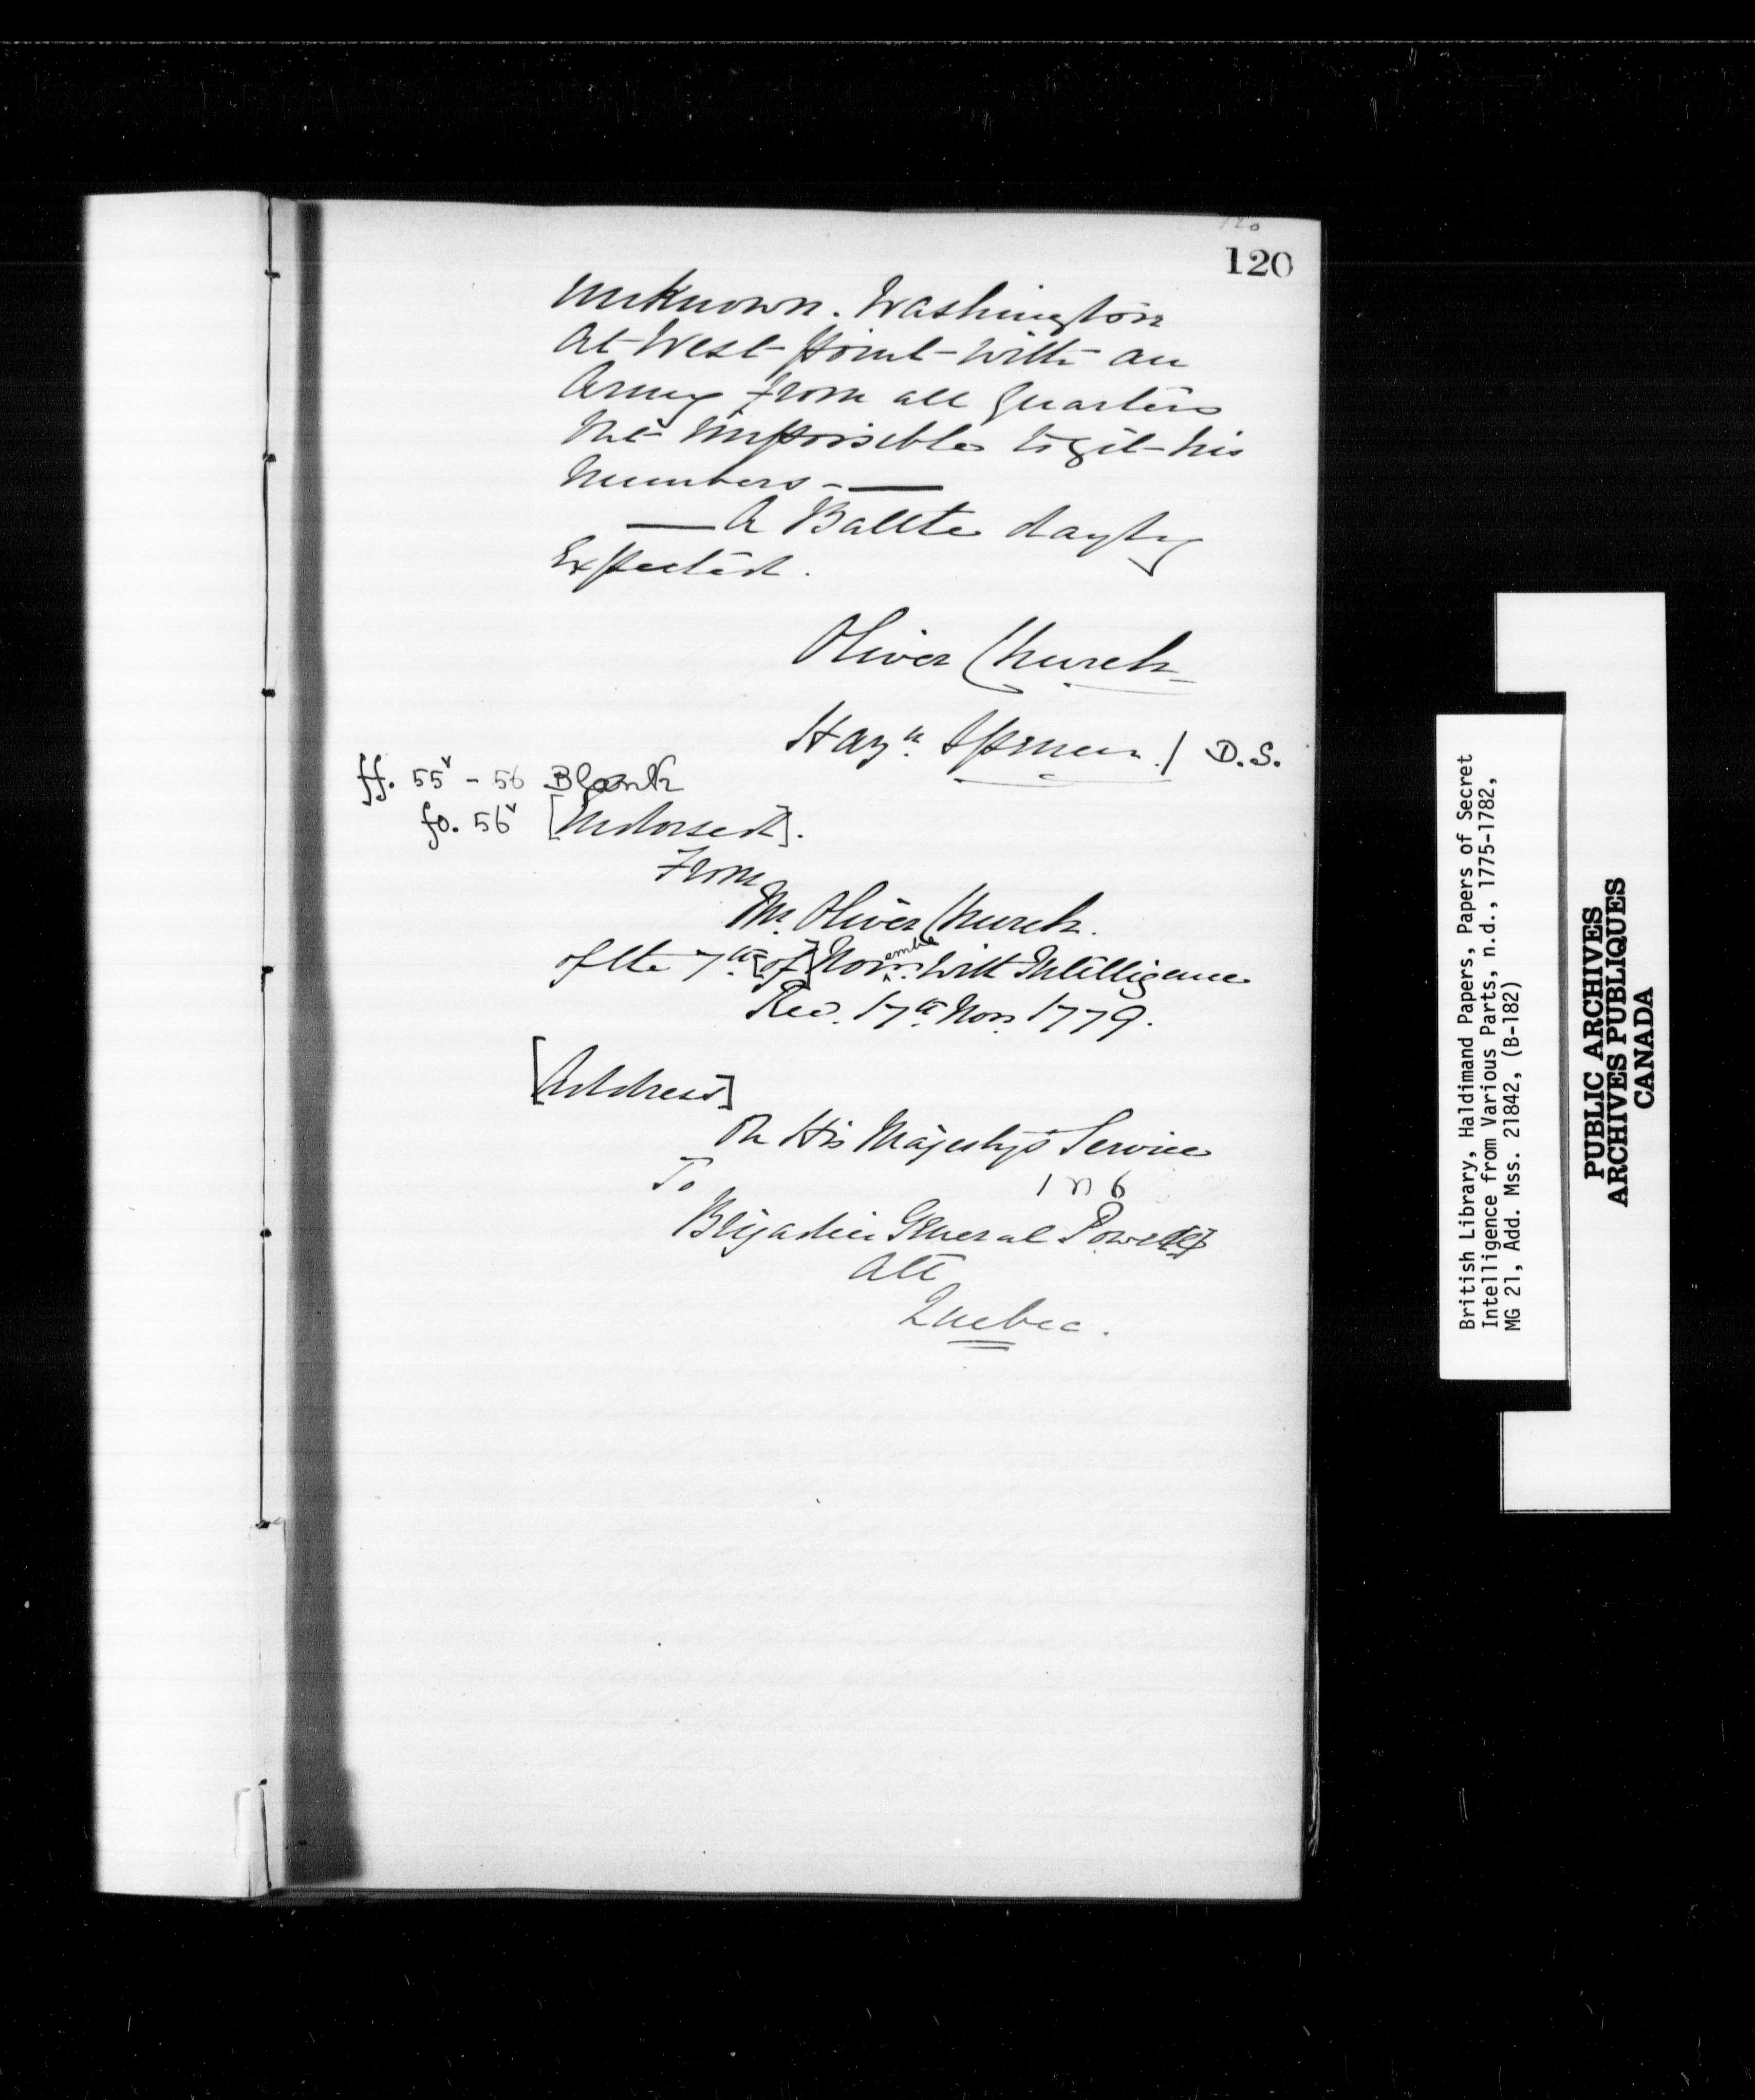 120
120
unknown. Washington
At West Point with an
Army from all Quarters
not impossible to git his
Numbers - —
— A Ballte dayly
Expected.
Oliver Church
Hazn. Spencer / D.S.
ff. 55v - 56 Blank
fo. 56v [Indorsed].
From
Mr. Oliver Church.
of the 7th [of] Novembr. with Intelligence
Rec. 17th Nov. 1779.
[Address]
On His Majesty's Service
To
Brigadier General Powell
Att
Quebec.
British Library, Haldimand Papers, Papers of Secret
Intelligence from Various Parts, n.d., 1775-1782,
MG 21, Add. Mss. 21842, (B-182)
PUBLIC ARCHIVES
ARCHIVES PUBLIQUES
CANADA